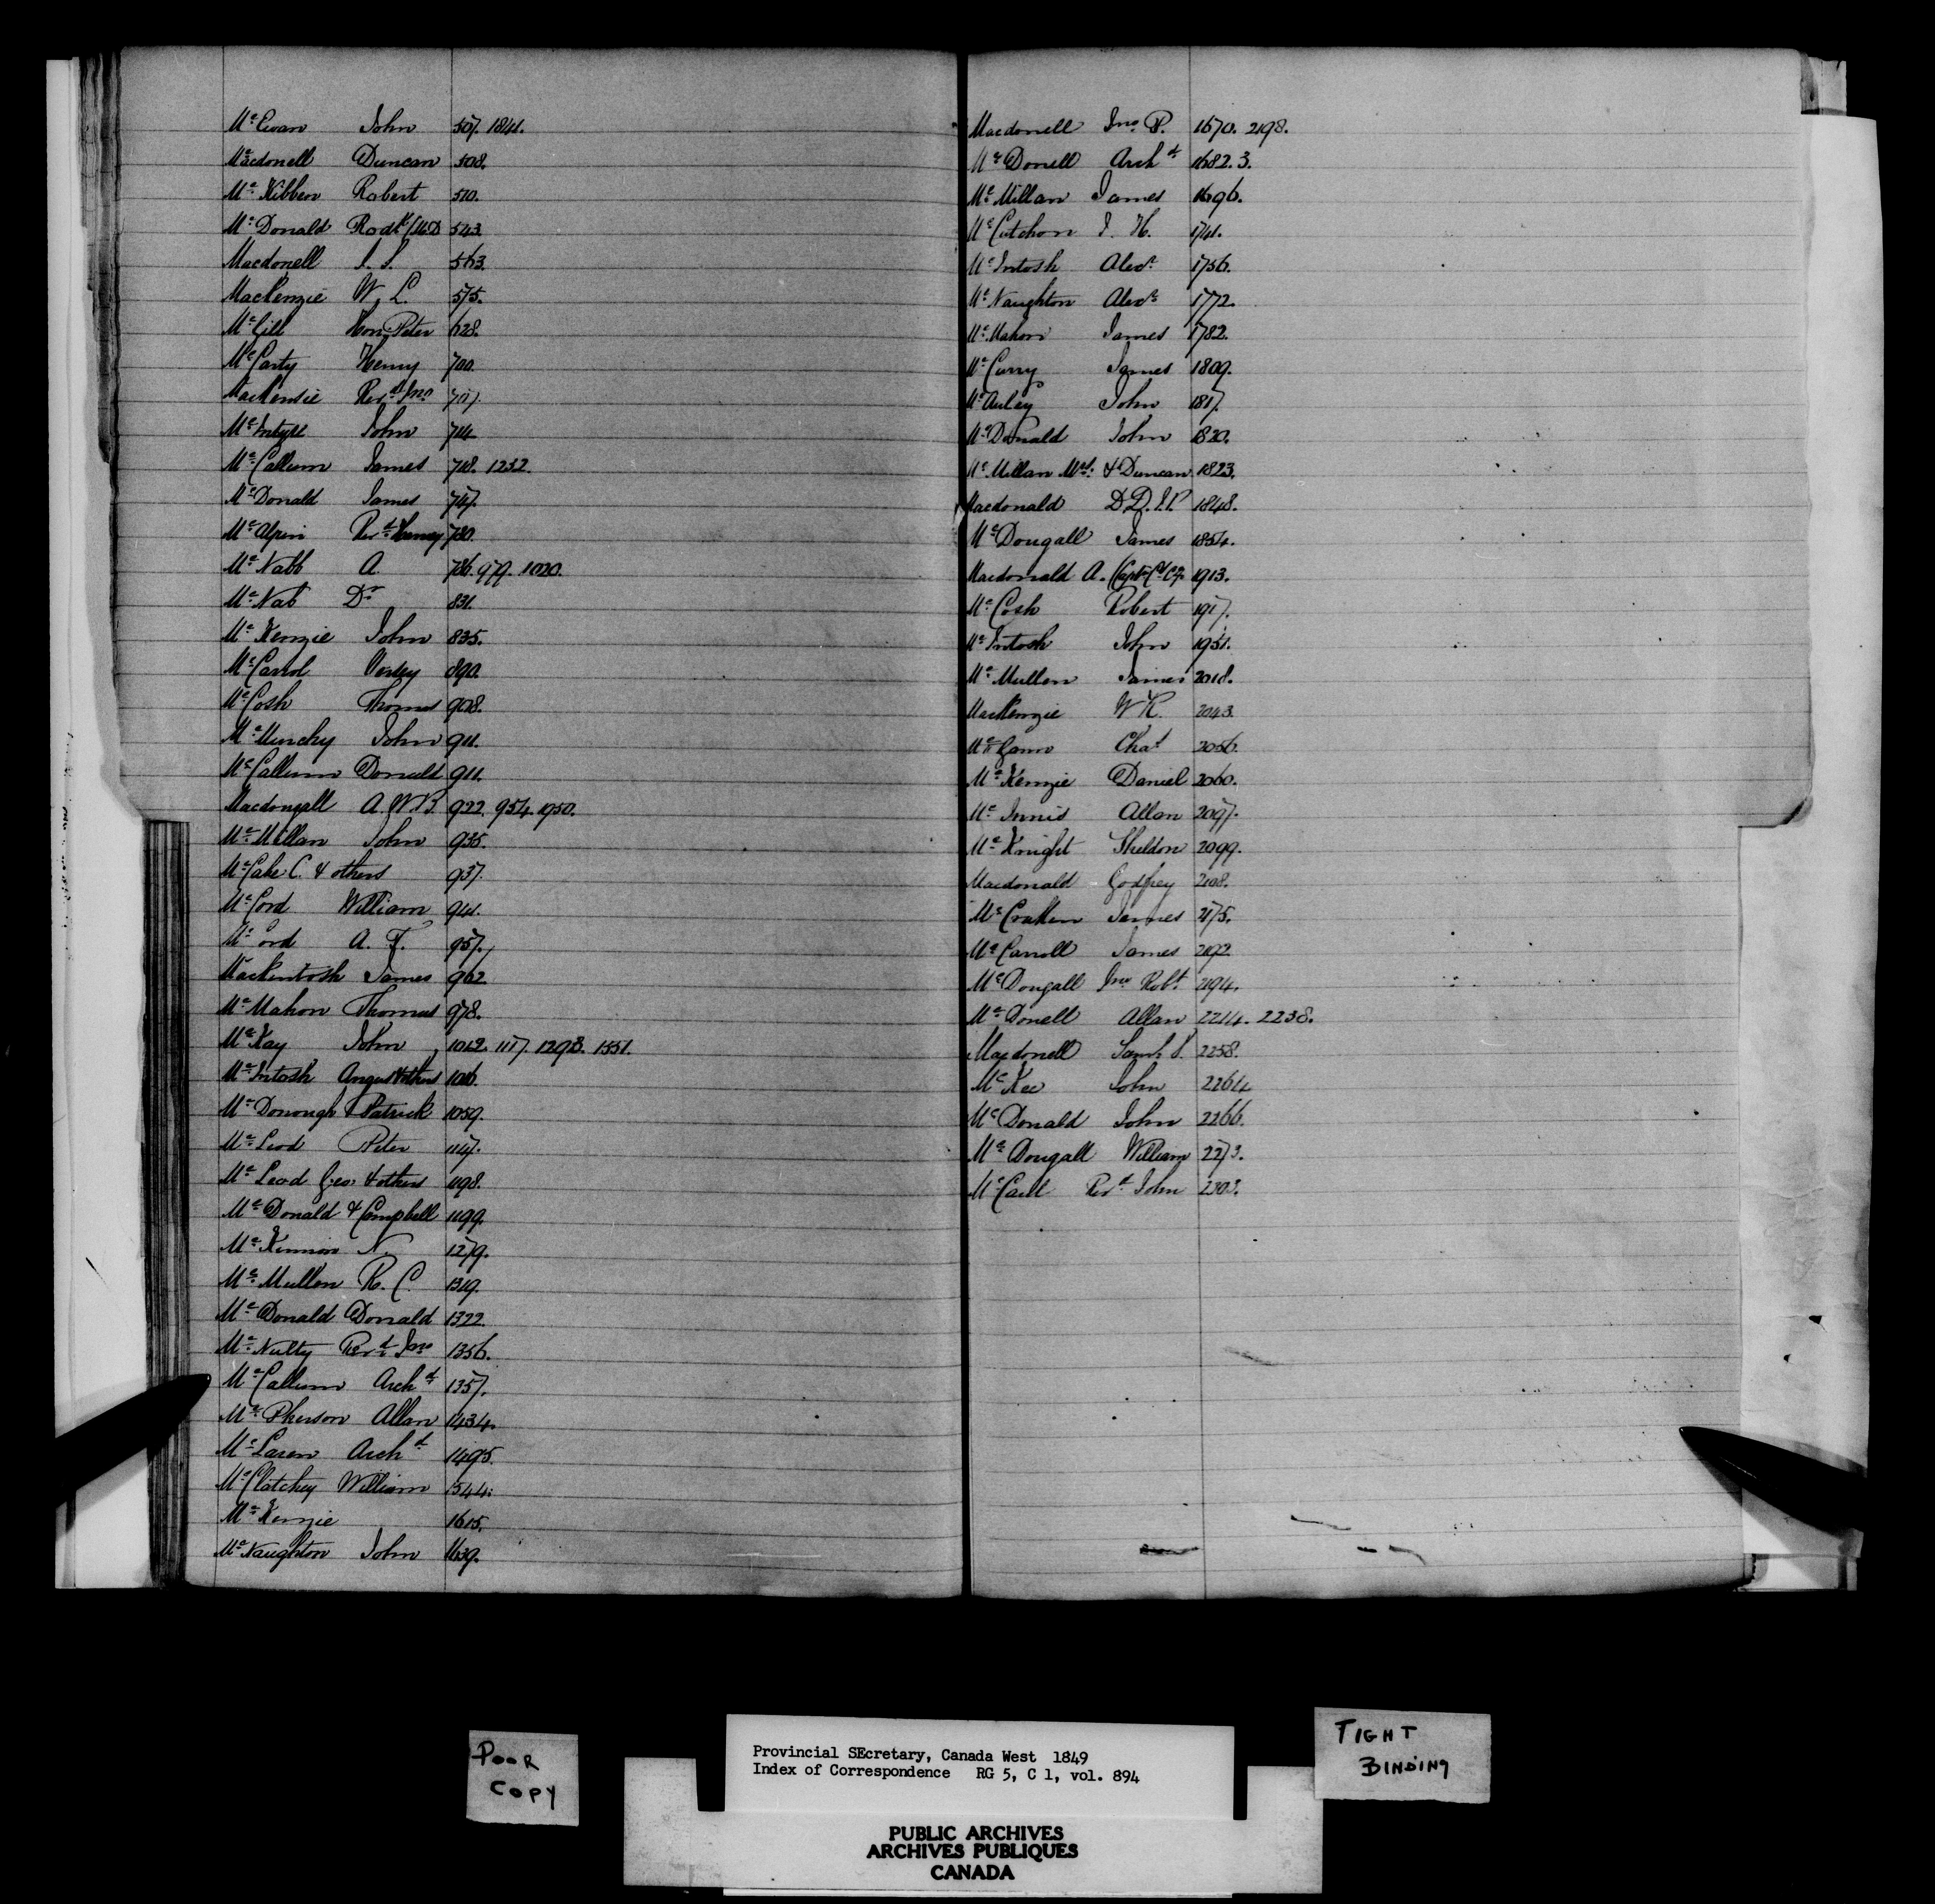 Mc Ewan John 507. 1841.
Macdonell Duncan 508.
Mc Kibbon Robert 510.
Mc Donald Rodk 543.
Macdonell J. S. 563.
Mackenzie W. L. 575.
Mc Gill Hon. Peter 628.
Mc Carty Henry 700.
Mackensie Revd Jno
Mc Intyre John 714
Mc Callum James 718. 1252.
Mc Donald James 747.
Mc Alpin Revd 780.
Mc Nabb A. 786. 979. 1020.
Mc Nab Dr 831.
Mc Kenzie John 835.
Mc Carrol 890.
Mc Cosh Thomas 908.
Mc Munchy John 911.
Mc Callum Donald 911.
Macdougall A. W. B. 922. 954. 1950.
Mc Millan John 935.
Mc Cabe C. & others 937.
Mc Cord William 941.
Mc Cord A. T. 957.
Mackintosh James 962
Mc Mahon Thomas 978.
Mc Kay John 1012. 1117. 1298. 1551.
Mc Intosh Angus & others 1016.
Mc Donough Patrick 1059.
Mc Leod Peter 1147.
Mc Leod Geo & others 1198.
Mc Donald & Campbell 1199.
Mc Kinnon N. 1279.
Mc Mullen R. C. 1319.
Mc Donald Donald 1322.
Mc Nulty Revd Jno 1356.
Mc Callum Archd 1357.
Mc Pherson Allan 1434.
Mc Laren Archd 1495.
Mc Clatchey William 1544.
Mc Kenzie 1615.
Mc Naughton John 1639.
Macdonell Jno P. 1670. 2198.
Mc Donell Archd 1682. 3.
Mc Millan James 1696.
Mc Cutchon J. H. 1741.
Mc Intosh Alexr 1756.
Mc Naughton Alexr 1772.
Mc Mahon James 1782.
Mc Curry James 1809.
Mc Auley John 1817.
Mc Donald John 1820.
Mc Millan & Duncan 1823.
Macdonald D. D. 1848.
Mc Dougall James 1854.
Macdonald A. 1913.
Mc Cosh Robert 1917.
Mc Intosh John 1951.
Mc Mullen James 2018.
MacKenzie W R. 2043.
Mc Gann Chas 2056.
Mc Kenzie Daniel 2060.
Mc Innis Allan 2097.
Mc Knight Sheldon 2099.
Macdonald Godfrey 2108.
Mc Cracken James 2175.
Mc Carroll James 2192.
Mc Dougall Jno Robt 2194.
Mc Donell Allan 2214. 2238.
Macdonell Saml S. 2258.
Mc Kee John 2264
Mc Donald John 2266.
Mc Dougall William 2273.
Mc Caul Revd John 2303.
POOR
COPY
Provincial SEcretary, Canada West 1849
Index of Correspondence RG 5, C 1, vol. 894
TIGHT
BINDING
PUBLIC ARCHIVES
ARCHIVES PUBLIQUES
CANADA